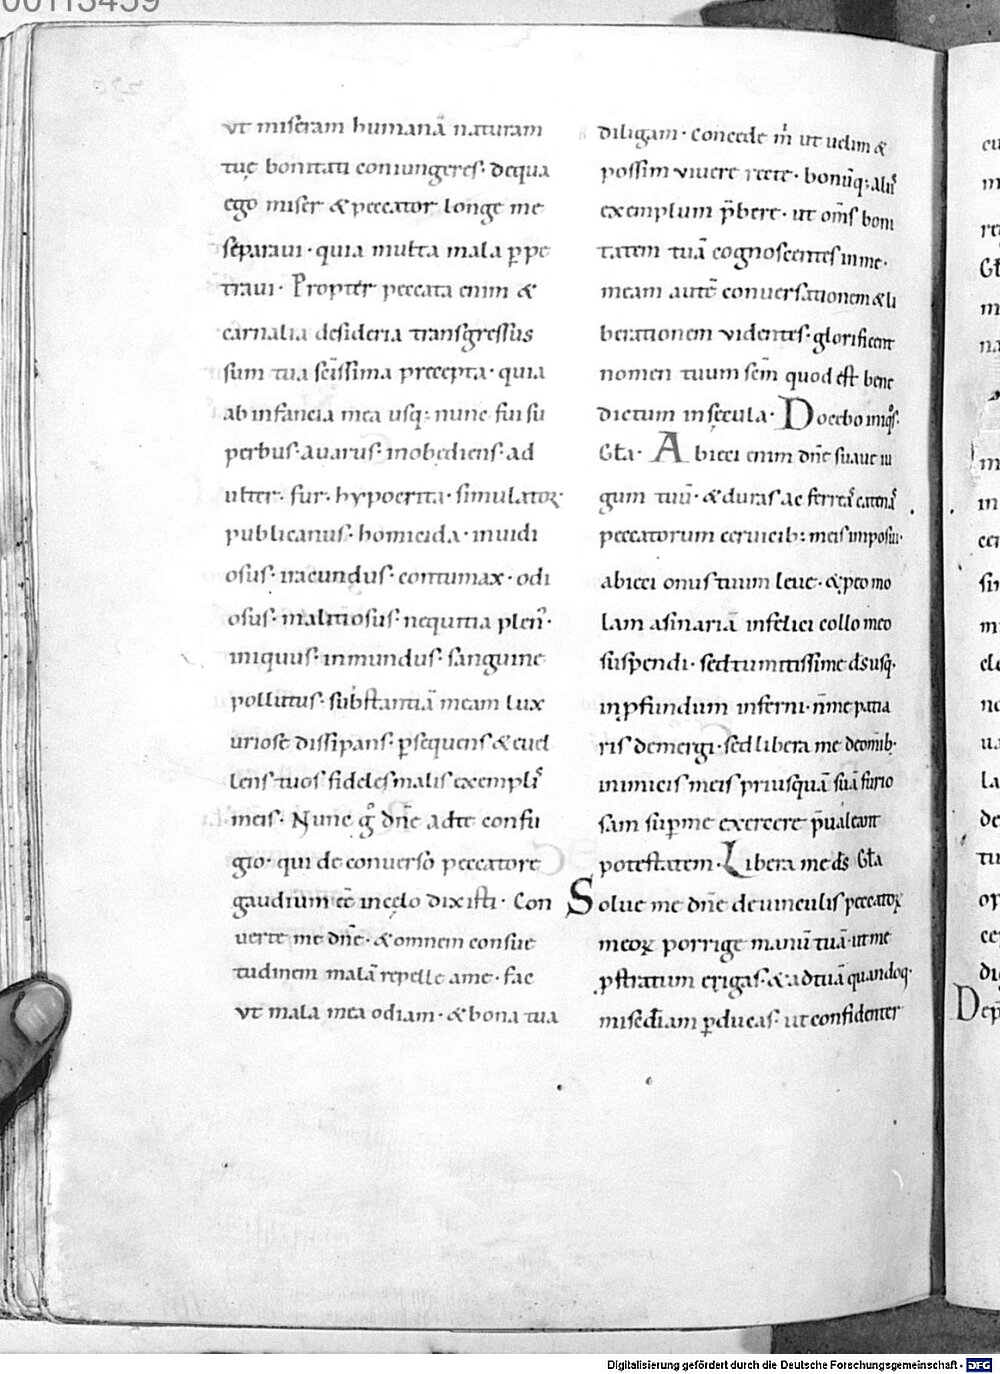 00113459
vt miseram humanā naturam
tuę bonitati coniungeres· dequa
ego miser & peccator longe me
separaui· quia multa mala ꝑpe
traui· Propter peccata enim &
carnalia desideria transgressus
sum tua sc̄issima precepta· quia
ab infancia mea usq; nunc fui su
perbus· auarus· inobediens· ad
ulter· fur· hypocrita· simulatoꝝ·
publicanus· homicida· inuidi
osus· iracundus· contumax· odi
osus· malitiosus· nequitia plen᷒·
iniquus· inmundus· sanguine
pollutus· substantiā meam lux
uriose dissipans· ꝑsequens & euel
lens tuos fideles malis exemplis
meis· Nunc gͦ dn̄e adte confu
gio· qui de conuerso peccatore
gaudium eē incęlo dixisti· Con
uerte me dn̄e· & omnem consue
tudinem malā repelle ame· fac
vt mala mea odiam· & bona tua
diligam· Concede m̄ ut uelim &
possim viuere recte· bonūq; aliis
exemplum p̄bere· ut om̄s boni
tatem tuā cognoscentes inme·
meam autē conuersationem & li
berationem videntes· glorificent
nomen tuum sc̄m quod est bene
dictum insęcula· Docebo iniqͦs·
Gła· Abieci enim dn̄e suaue iu
gum tuū· & duras ac ferreas catenas
peccatorum ceruicib; meis imposui·
abieci onus tuum leue· & ꝓeo mo
lam asinariā infelici collo meo
suspendi· sed tu mitissime ds̄ usq·
inꝓfundum inferni· n̄ me patia
ris demergi· sed libera me deomīb·
inimicis meis priusquā suā furio
sam suꝑme exercere p̄ualeant
potestatem· Libera me ds̄ Gła
Solue me dn̄e deuinculis peccatoꝝ
meoꝝ porrige manū tuā· ut me
ꝓstratum erigas· & adtuā quandoq·
miscđiam ꝑducas· ut confidenter
Digitalisierung gefördert durch die Deutsche Forschungsgemeinschaft - DFG